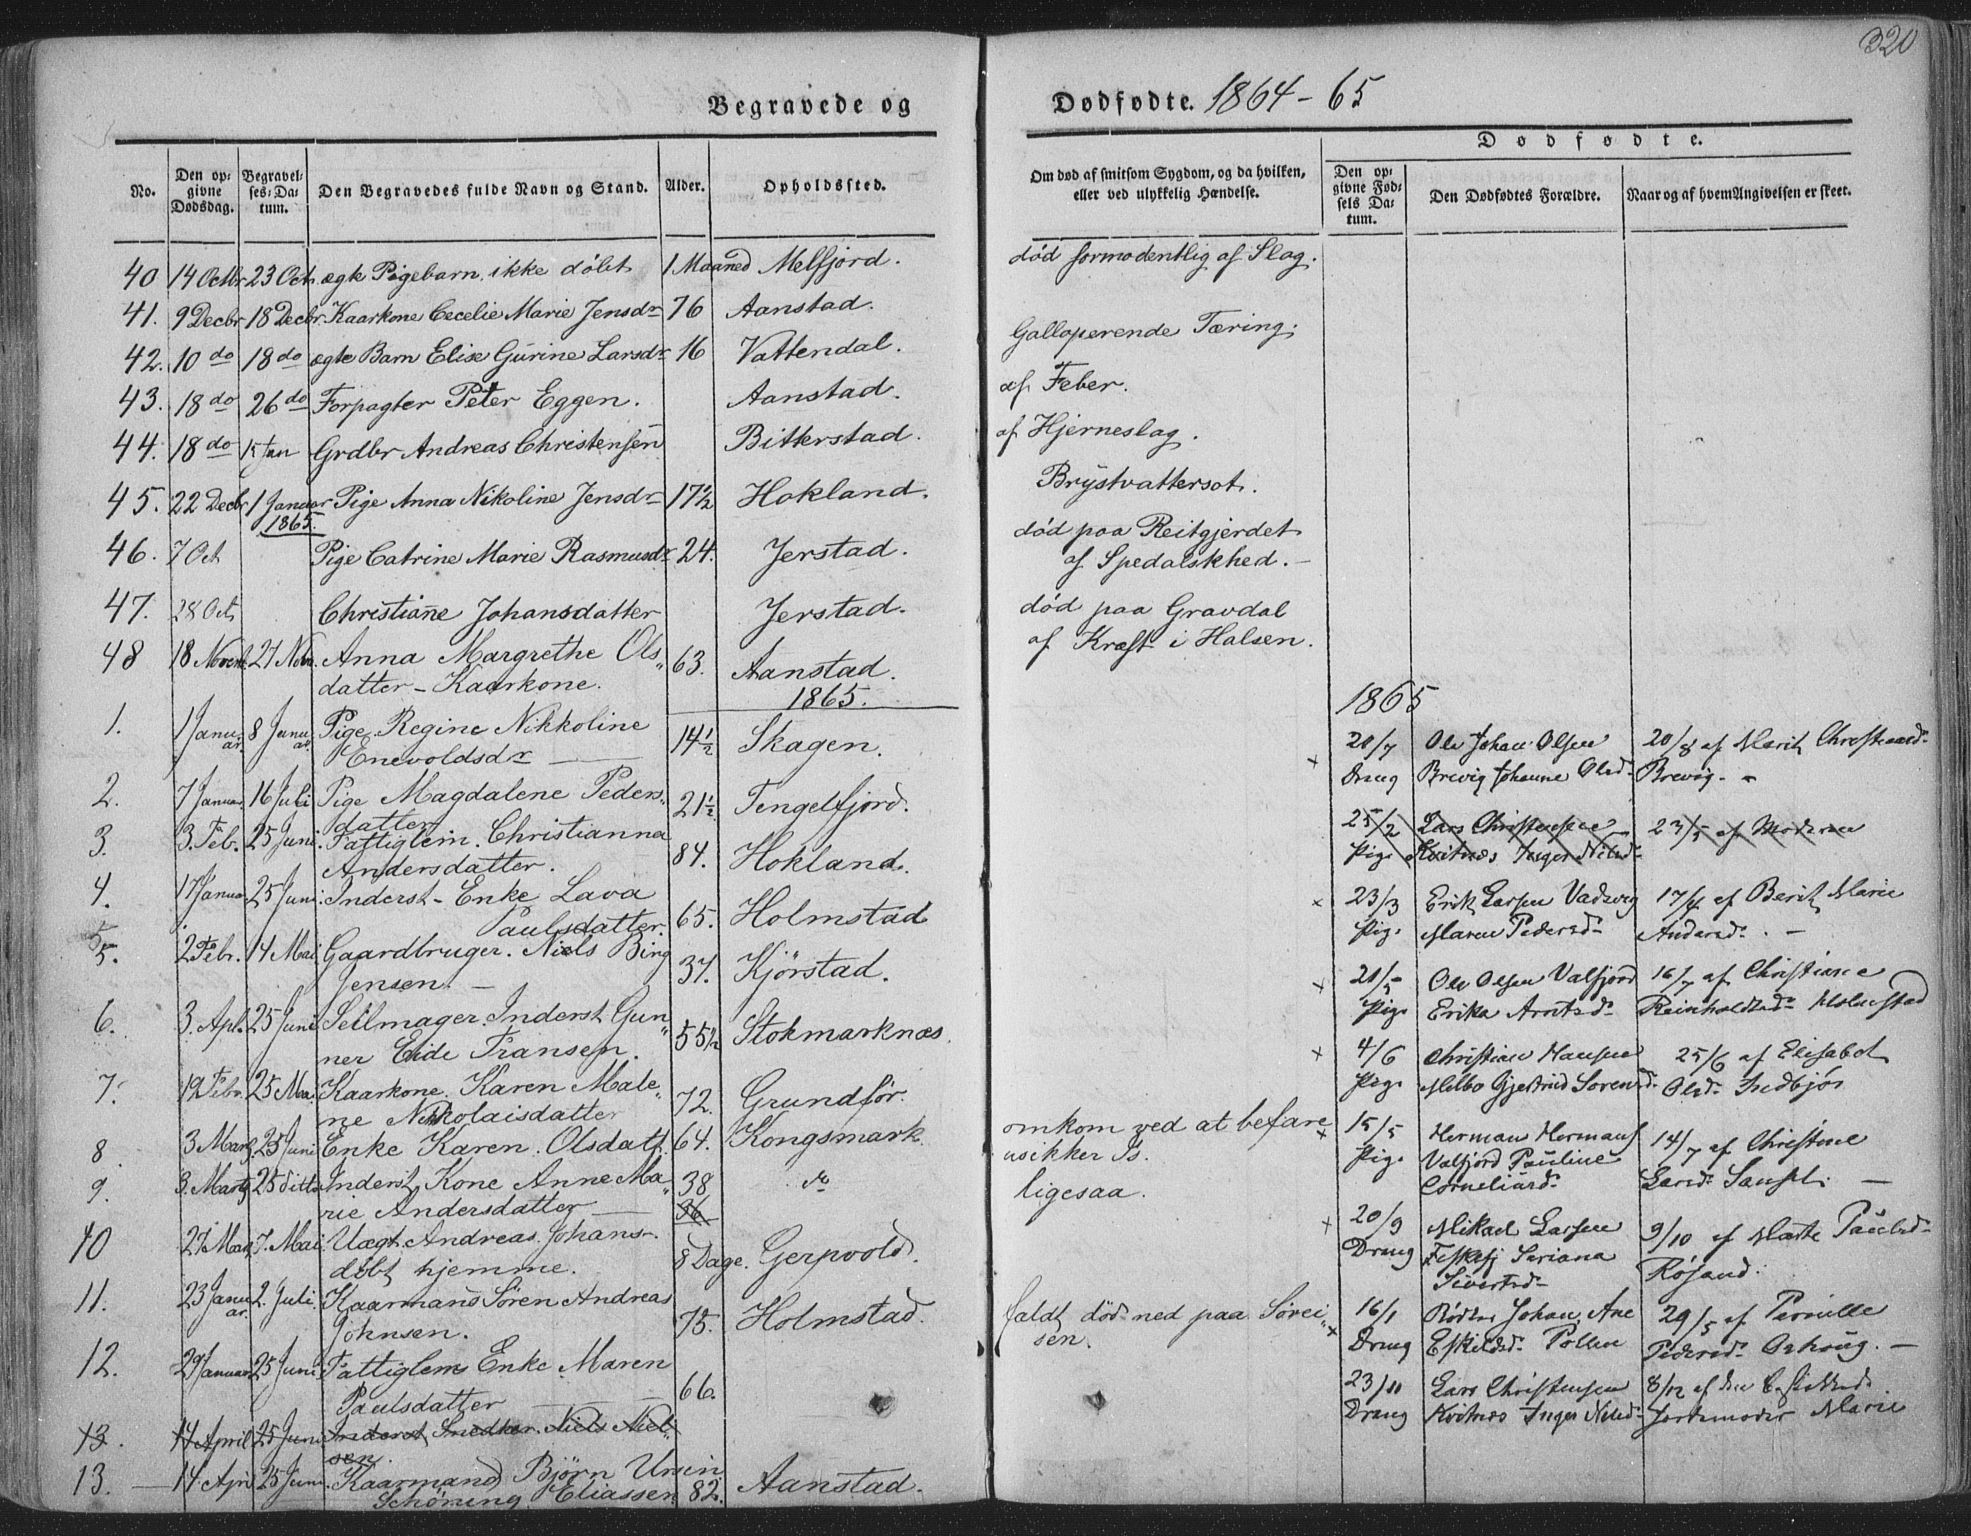 320
Begravede og
Dødfødte. 1864-65
No.
Den op=
givne
Dødsdag.
Begravel=
ses=Da=
tum.
Den Begravedes fulde Navn og Stand.
Alder.
Opholdssted.
Om død af smitsom Sygdom, og da hvilken,
eller ved ulykkelig Hændelse.
Dødfødte.
Den op=
givne Fød=
sels Da=
tum.
Den Dødfødtes Forældre.
Naar og af hvem Angivelsen er skeet.
40 14 Octbr 23 Oct ægte Pigebarn ikke døbt 1 Maaned Melfjord. død formodentlig af Slag.
41. 9 Decbr 18 Decbr. Kaarkone Cecelie Marie Jensdr 76 Aanstad.
42. 10 do 18 do ægte Barn Elise Gurine Larsdr 16 Vattendal. Galloperende Tæring.
43. 18 do 26 do Forpagter Peter Eggen. Aanstad. af Feber.
44. 18 do Jan Grdbr Andreas Christensen Bitterstad. af Hjerneslag.
45. 22 Decbr 1 Januar Pige Anna Nikoline Jensdr 17 1/2 Hokland. Brystvattersot.
1865.
46. 7 Oct Pige Catrine Marie Rasmusdr 24. Jerstad. død paa Reitgjerdet
af Spedalskhed. -
47. 28 Oct Christiane Johansdatter Jerstad. død paa Gravdal
af Kræft i Halsen.
48 18 Novemb. 27 Nov. Anna Margrethe Ols"
datter - Kaarkone. 63. Aanstad.
1865.
1. 1 Janu
ar. 8 Janu
ar. Pige Regine Nikkoline
Enevoldsdr 14 1/2 Skagen.
2. 7 Januar 16 Juli Pige Magdalene Peders"
datter 21 1/2 Tengelfjord.
3. 3. Feb. 25 Juni. Fattiglem. Christianna
Andersdatter. 84. Hokland.
4. 17 Januar 25 Juni. Inderst - Enke Lava
Paulsdatter. 65. Holmstad
5. 2 Febr. 14 Mai. Gaardbruger. Niels Bing
Jensen. - 37. Kjörstad.
6. 3. Apl. 25 Juni. Seilmager. Inderst Gun"
ner Eide Fransen. 55 1/2 Stokmarknæs.
7. 19 Febr. 25 Mai. Kaarkone. Karen Male"
ne Nikolaisdatter 72. Grundför.
8. 3 Marts 25 Juni Enke Karen Olsdatt. 64. Kongsmark. omkom ved at befare
usikker Is.
9. 3. Marts 25 ditto Inderst Kone Anne Ma"
rie Andersdatter 38
36 do ligesaa.
10 27 Mart 7. Mai Uægt. Andreas Johans-
döbt hjemme. 8 Dage. Gerpvold.
11. 23 Janu
ar. 2. Juli. Kaarmand Sören Andreas
Johnsen. 75. Holmstad. faldt död ned paa Sørei"
sen.
12. 29 Januar 25 Juni. Fattiglems Enke Maren
Paulsdatter 66.
13. 14 April 25 Juni Inderst Snedker. Niels Niel"
sen.
13. 14 Apri 25 Juni. Kaarmand Björn Ursin
Schöning Eliassen 82. Aanstad.
1865
20/7
Dreng Ole Johan Olsen
Brevig Johanne Olsd. 20/8 af Marit Christiansd.
Brevig. -
25/2
Pige Lars Christensen
Kvitnæs Inger Nilsd. 23/5 af Moderen
23/3
Pige Erik Larsen Vadsvig
Maren Pedersd. 17/4 af Berit Marie
Andersd. -
20/5
Pige Ole Olsen Valfjord
Erika Arntsd. 16/7 af Christiane
Reinholdtsd. Holmstad
4/6
Pige Christian Hansen
Melbo Gjertrud Sorensd. 25/6 af Elisabet
Olsd.
15/5
Pige Herman Hermans
Valfjord Pauline
Corneliusd. 14/7 af Christine
Larsd.
20/9
Dreng Mikael Larsen
Seriana
Sivertsd. 9/10 af Marte Paulsd.
16/1
Dreng Johan, Ane
Eskildsd. Pollen 29/5 af Pernille
Pedersd. -
23/11
Dreng Lars Christensen
Kvitnæs Inger Nilsd. 8/12 af
Jordemoder Marie